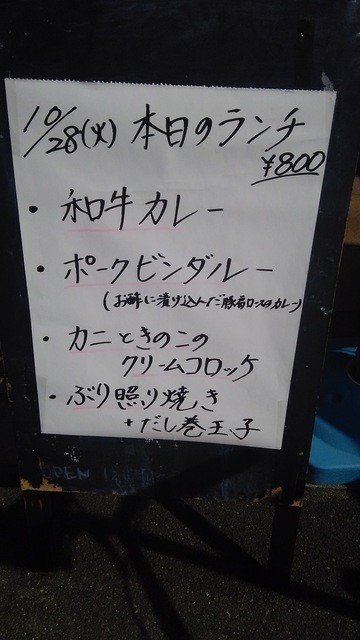 10/28(火) 本日のランチ
¥800
・和牛カレー
・ポークビンダルー
(お酢に漬け込んだ豚肩ロースのカレー)
・カニときのこの
クリームコロッケ
・ぶり照り焼き
+だし巻玉子
OPEN